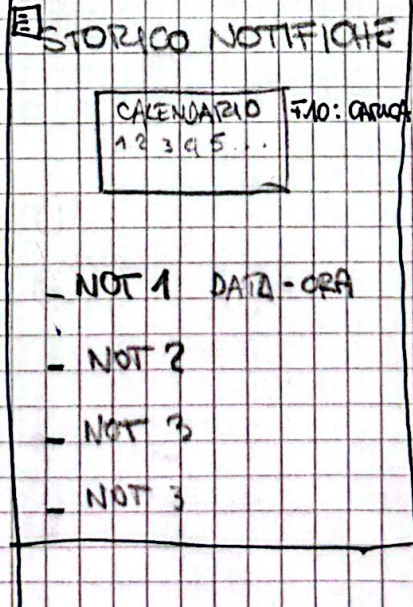 STORICO NOTIFICHE
CALENDARIO
1 2 3 4 5 ...
- NOT 1 DATA - ORA
- NOT 2
- NOT 3
- NOT 3